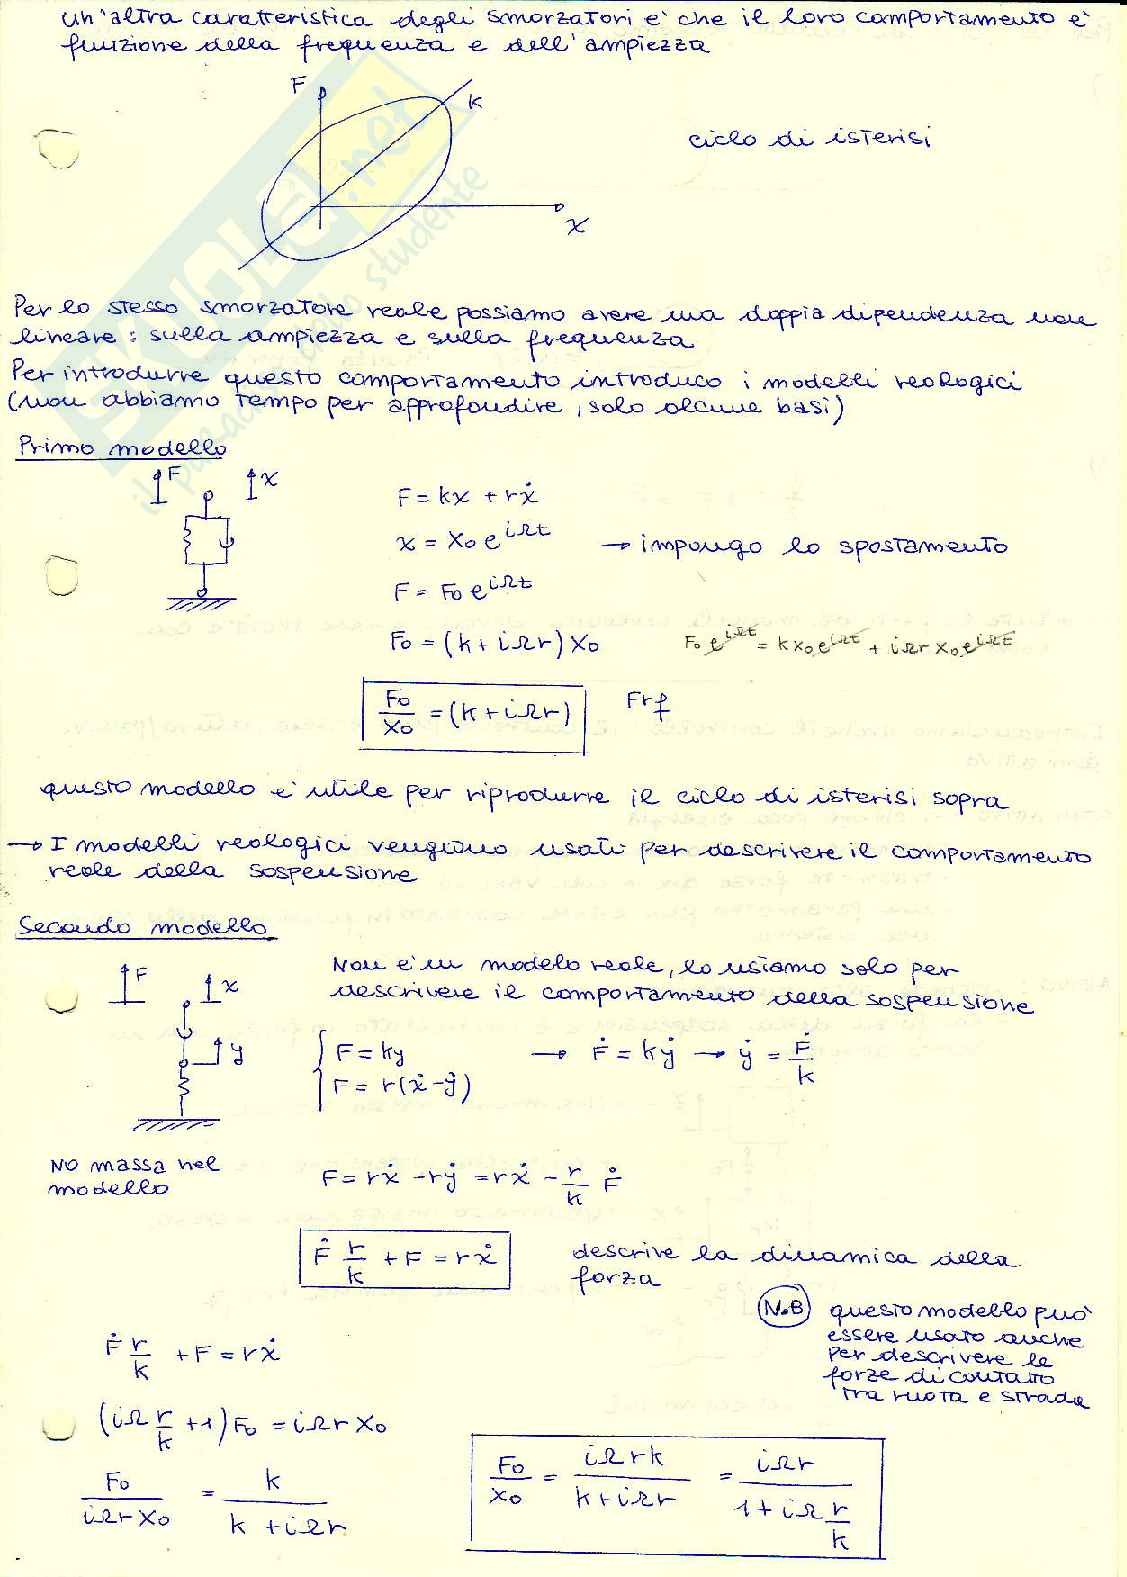 un'altra caratteristica degli smorzatori e' che il loro comportamento e'
funzione della frequenza e dell'ampiezza
F
k
ciclo di isterisi
x
Per lo stesso smorzatore reale possiamo avere una doppia dipendenza non
lineare: sulla ampiezza e sulla frequenza
Per introdurre questo comportamento introduco i modelli reologici
(non abbiamo tempo per approfondire, solo alcune basi)
Primo modello
F x
F = kx + rẋ
x = X₀ e^{iΩt} → impongo lo spostamento
F = F₀ e^{iΩt}
F₀ = (k + iΩr) X₀ F₀ e^{iΩt} = k x₀ e^{iΩt} + iΩr x₀ e^{iΩt}
F₀/X₀ = (k + iΩr) Frf
questo modello e' utile per riprodurre il ciclo di isterisi sopra
→ I modelli reologici vengono usati per descrivere il comportamento
reale della sospensione
Secondo modello
F x y
Non e' un modelo reale, lo usiamo solo per
descrivere il comportamento della sospensione
F = ky → Ḟ = kẏ → ẏ = Ḟ/k
F = r(ẋ-ẏ)
No massa nel
modello
F = rẋ - rẏ = rẋ - r/k Ḟ
Ḟ r/k + F = rẋ
descrive la dinamica della
forza
N.B questo modello può
essere usato anche
per descrivere le
forze di contatto
tra ruota e strada
Ḟ r/k + F = rẋ
(iΩ r/k + 1) F₀ = iΩr X₀
F₀/(iΩr X₀) = k/(k + iΩr)
F₀/X₀ = iΩrk/(k + iΩr) = iΩr/(1 + iΩ r/k)
SKUOLA.net
il paradiso dello studente